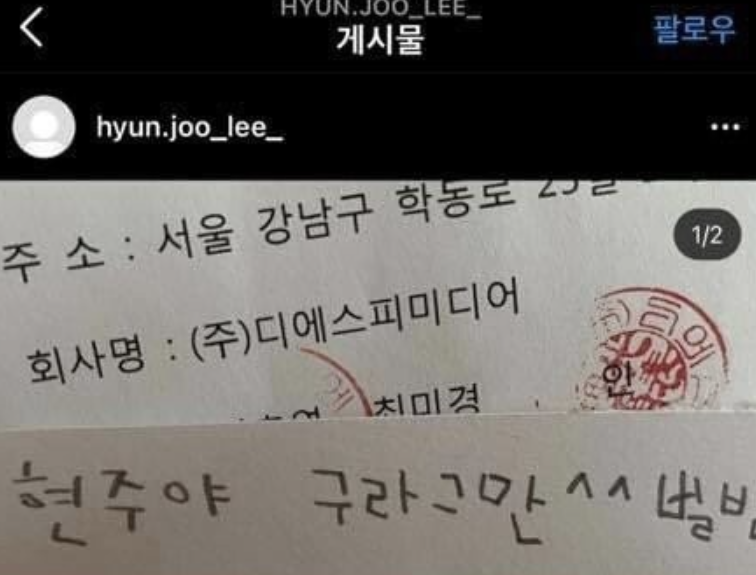 HYUN.JOO_LEE_
게시물
팔로우
hyun.joo_lee_
1/2
주 소 : 서울 강남구 학동로
회사명 : (주)디에스피미디어
최미경 인
현주야 구라그만^^